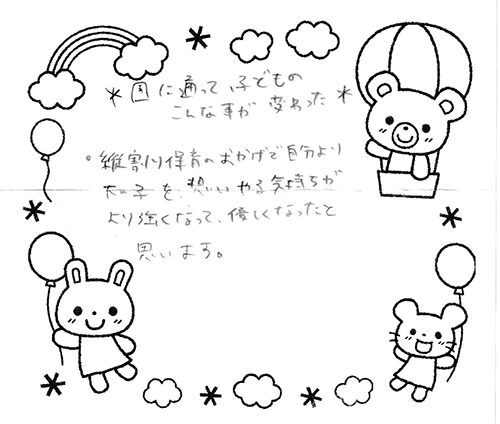 * 園に通って、子どもの
こんな事が変わった *
• 縦割り保育のおかげで自分より
下の子を、想いやる気持ちが
より強くなって、優しくなったと
思います。